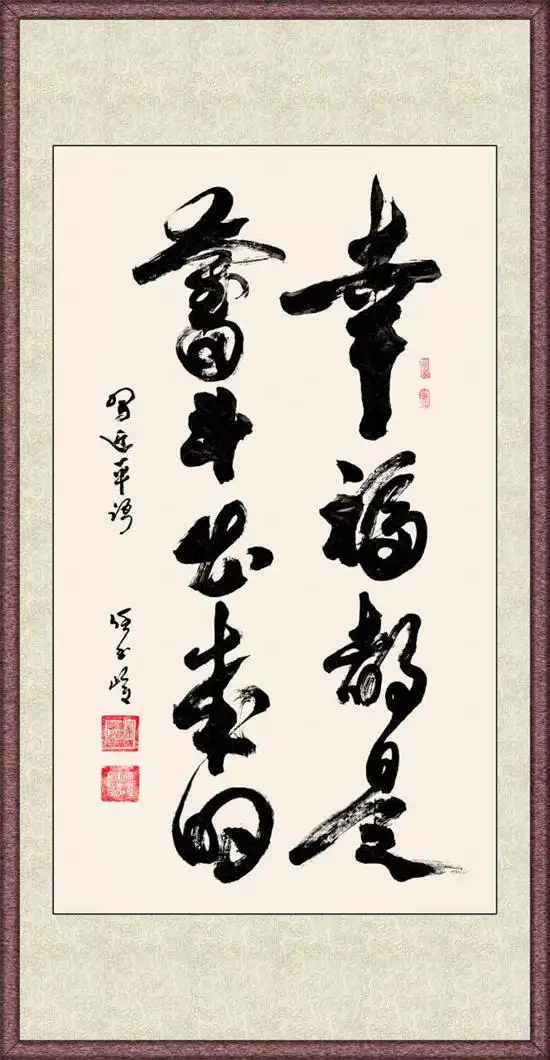 幸福都是
奮斗出来的
习近平语